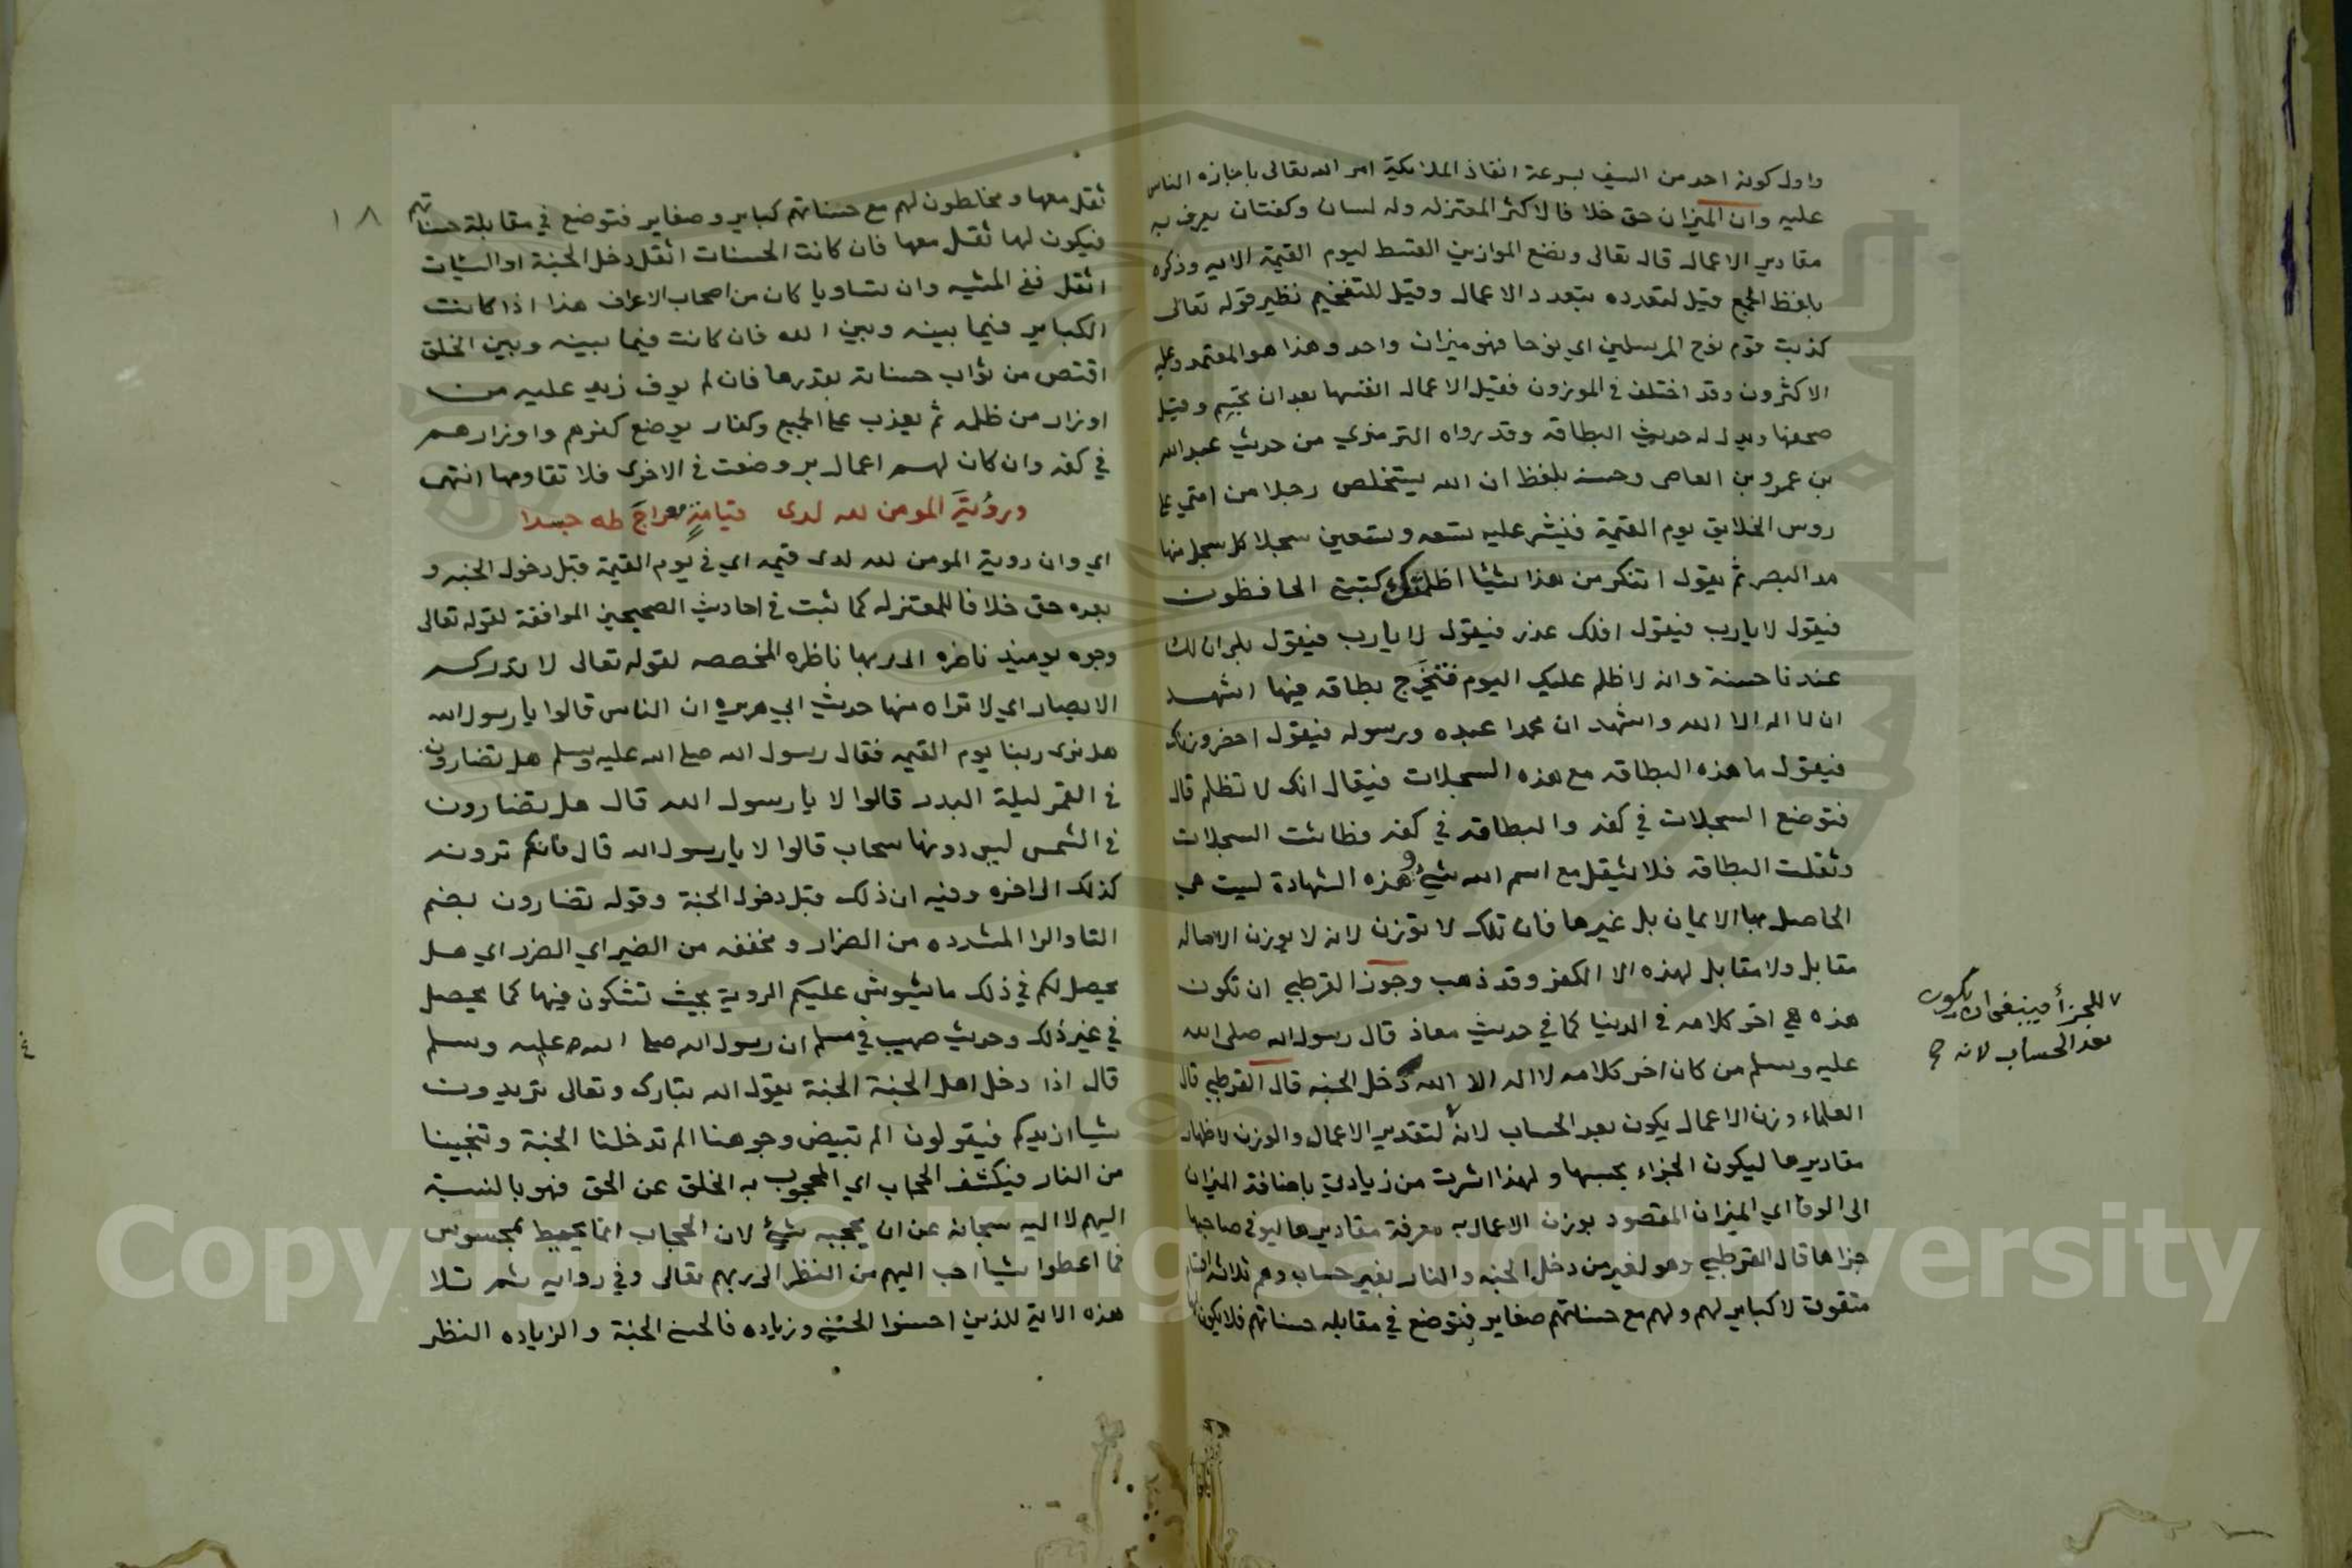 واول كونه احد من السيف بسرعة انفاذ الملائكة امر الله تعالى باجازه الناس
عليه وان الميزان حق خلا فا لاكثر المعتزله وله لسان وكفتان يعرف به
مقادير الاعمال قال تعالى ونضع الموازين القسط ليوم القيمة الايه وذكره
بلفظ الجمع قيل لتعدده بتعدد الاعمال وقيل للتفخيم نظير قوله تعالى
كذبت قوم نوح المرسلين اي نوحا فهو ميزان واحد وهذا هو المعتمد وعليه
الاكثرون وقد اختلف في الموزون فقيل الاعمال انفسها بعد ان تجسم وقيل
صحفها ويدل له حديث البطاقه وقد رواه الترمذي من حديث عبد الله
بن عمرو بن العاص وحسنه بلفظ ان الله يستخلص رجلا من امتي على
روس الخلايق يوم القيمة فينشر عليه تسعه وتسعين سجلا كل سجل منها
مد البصر ثم يقول اتنكر من هذا شيا اظلمك كتبتي الحافظون
فيقول لا يارب فيقول افلك عذر فيقول لا يارب فيقول بلى ان لك
عندنا حسنة وانه لا ظلم عليك اليوم فتخرج بطاقه فيها اشهد
ان لا اله الا الله واشهد ان محمدا عبده ورسوله فيقول احضر وزنك
فيقول ما هذه البطاقه مع هذه السجلات فيقال انك لا تظلم قال
فتوضع السجلات في كفه والبطاقه في كفه فطاشت السجلات
وثقلت البطاقه فلا يثقل مع اسم الله شيء وهذه الشهادة ليست هي
الحاصل بها الايمان بل غيرها فان تلك لا توزن لانه لا يوزن الا ماله
مقابل ولا مقابل لهذه الا الكفر وقد ذهب وجوز القرطبي ان تكون
هذه هي اخر كلامه في الدنيا كما في حديث معاذ قال رسول الله صلى الله
عليه وسلم من كان اخر كلامه لا اله الا الله دخل الجنه قال القرطبي قال
العلماء وزن الاعمال يكون بعد الحساب لانه لتقدير الاعمال والوزن لاظهار
مقاديرها ليكون الجزاء بحسبها ولهذا اشرت من زيادتي باضافة الميزان
الى الوفا اي الميزان المقصود بوزن الاعمال به معرفة مقاديرها ليوفى صاحبها
جزاها قال القرطبي وهو لغير من دخل الجنه والنار بغير حساب وهم ثلاثه اقسام
متقون لا كباير لهم ولهم مع حسناتهم صغاير فتوضع في مقابله حسناتهم فلا يكون لها
للجزأ فينبغى ان يكون
بعد الحساب لانه
١٨
ثقل معها ومخلطون لهم مع حسناتهم كباير وصغاير فتوضع في مقابلة حسناتهم
فيكون لها ثقل معها فان كانت الحسنات اثقل دخل الجنة او السيئات
اثقل ففي المشيه وان تساويا كان من اصحاب الاعراف هذا اذا كانت
الكباير فيما بينه وبين الله فان كانت فيما بينه وبين الخلق
اقتص من ثواب حسناته بقدرها فان لم يوف زيد عليه من
اوزار من ظلمه ثم يعذب على الجميع وكفار يوضع كفرهم واوزارهم
في كفه وان كان لهم اعمال بر وضعت في الاخرى فلا تقاومها انتهى
ورؤية المومن لله لدى قيامة معراج طه جسدا
اي وان روية المومن لله لدى قيمه اي في يوم القيمة قبل دخول الجنه و
بعده حق خلافا للمعتزله كما ثبت في احاديث الصحيحين الموافقة لقوله تعالى
وجوه يوميذ ناضره الى ربها ناظره المخصصه لقوله تعالى لا تدركه
الابصار اي لا تراه منها حديث ابي هريره ان الناس قالوا يا رسول الله
هل نرى ربنا يوم القيمه فقال رسول الله صلى الله عليه وسلم هل تضارون
في القمر ليلة البدر قالوا لا يا رسول الله قال هل تضارون
في الشمس ليس دونها سحاب قالوا لا يا رسول الله قال فانكم ترونه
كذلك الى اخره وفيه ان ذلك قبل دخول الجنة وقوله تضارون بضم
التا والرا المشدده من الضرار ومخففه من الضير اي الضرر اي هل
يحصل لكم في ذلك ما يشوش عليكم الروية بحيث تشكون فيها كما يحصل
في غير ذلك وحديث صهيب في مسلم ان رسول الله صلى الله عليه وسلم
قال اذا دخل اهل الجنة الجنة يقول الله تبارك وتعالى تريدون
شيا ازيدكم فيقولون الم تبيض وجوهنا الم تدخلنا الجنة وتنجينا
من النار فيكشف الحجاب اي المحجوب به الخلق عن الحق فهو بالنسبة
اليهم لا اليه سبحانه عن ان يحجبه شيء لان الحجاب انما يحيط بمحسوس
فما اعطوا شيا احب اليهم من النظر الى ربهم تعالى وفي روايه ثم تلا
هذه الاية للذين احسنوا الحسنى وزياده فالحسنى الجنة والزياده النظر
Copyright © King Saud University